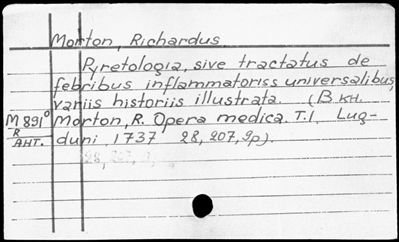 Morton, Richardus.
Pyretologia, sive tractatus de
febribus inflammatoriss universalibus,
variis historiis illustrata. (В кн.
M 891⁰ Morton, R. Opera medica. T.I, Lug-
R
АНТ. duni, 1737 28, 207, 9p).